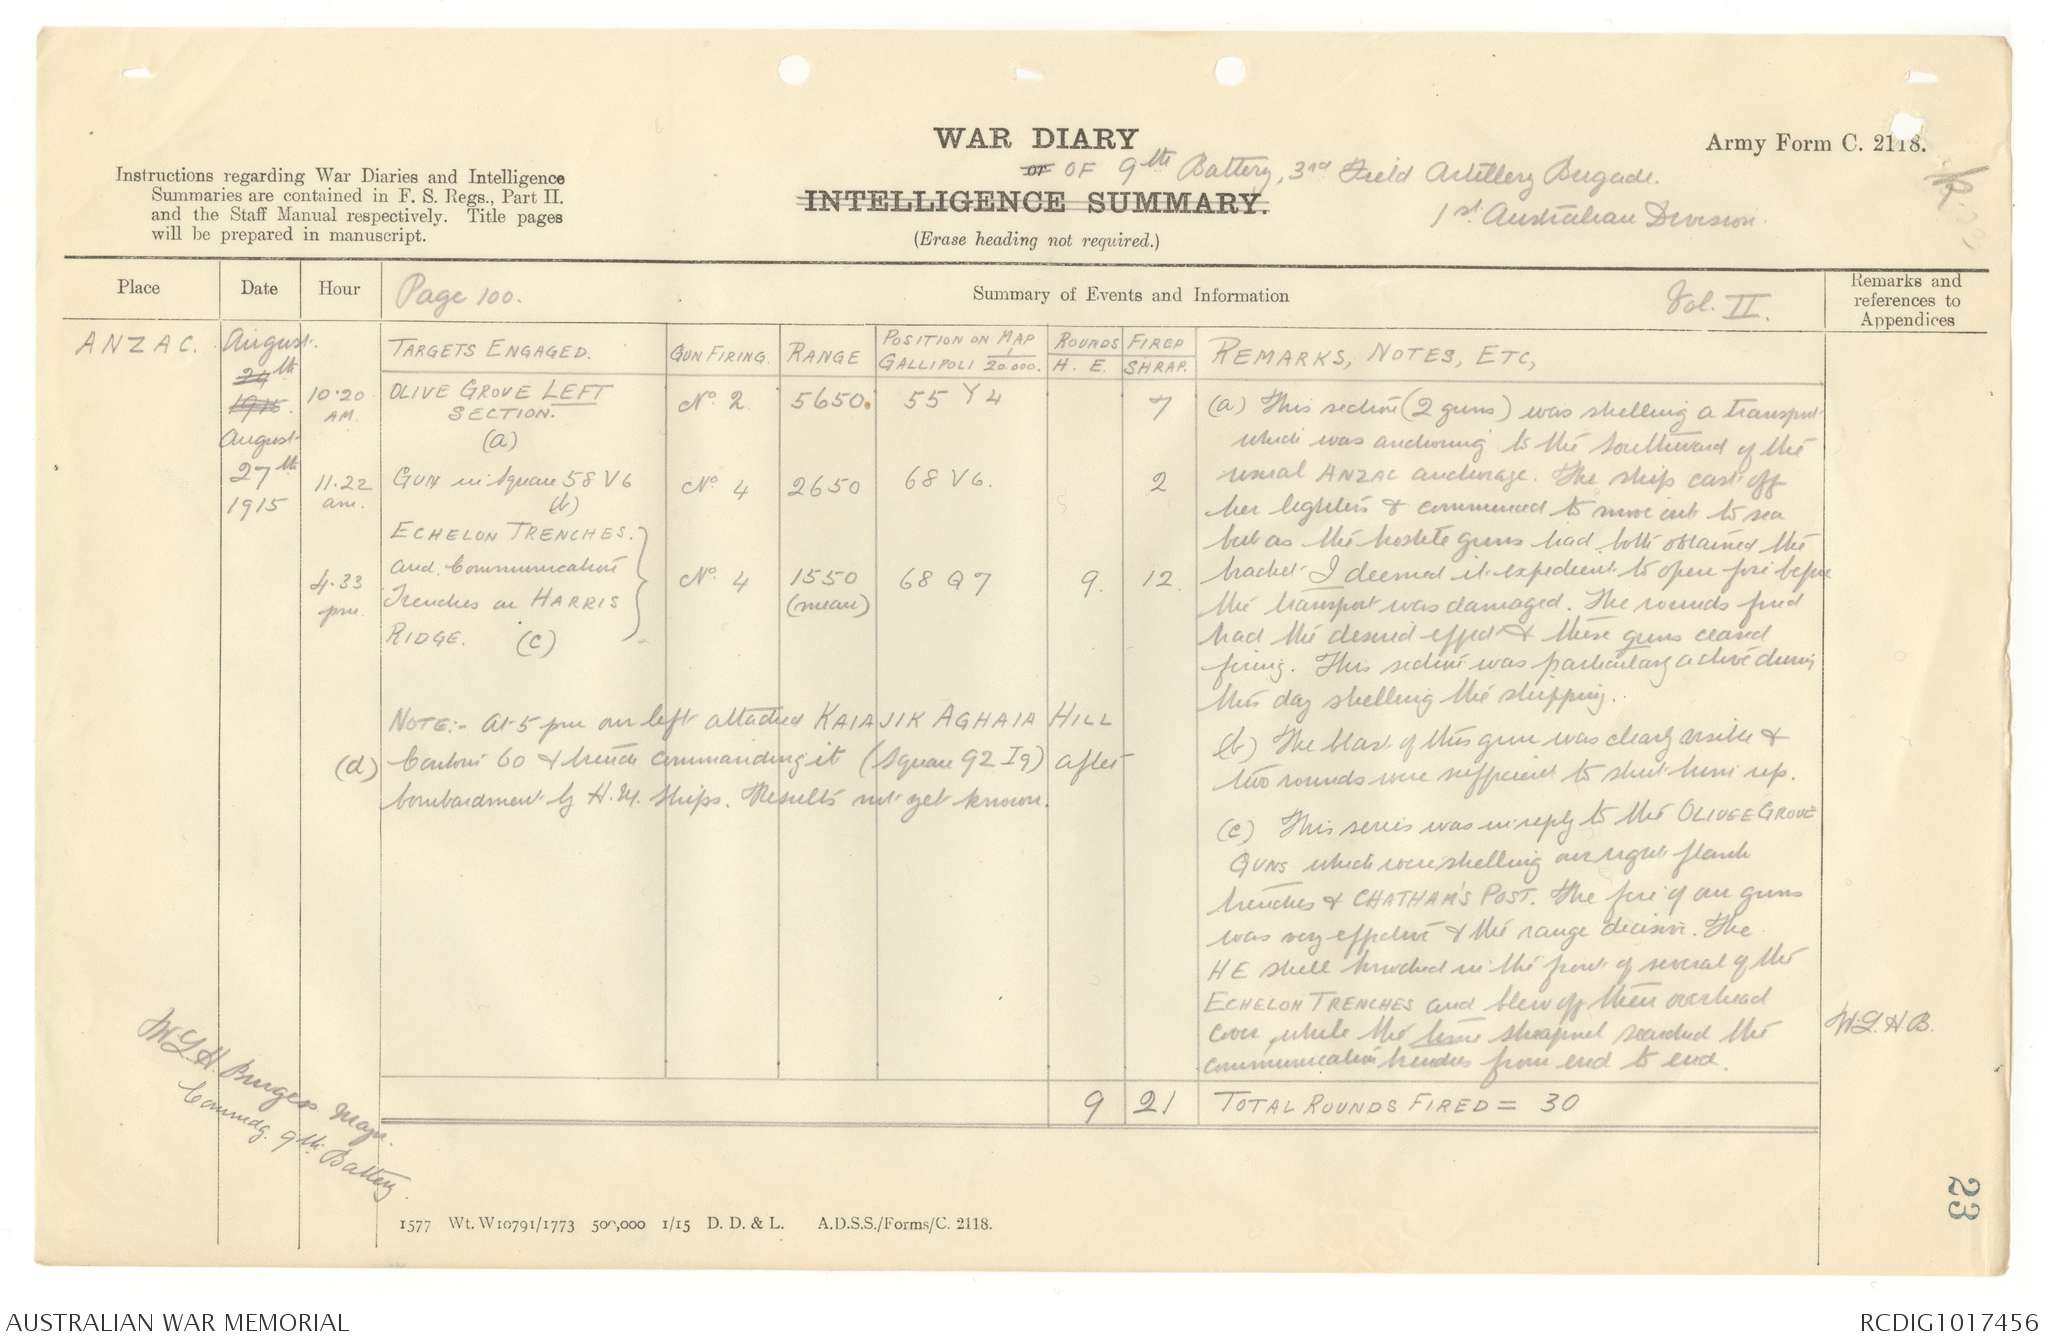 WAR DIARY
Army Form C. 2118.
or OF 9th Battery, 3rd Field Artillery Brigade.
INTELLIGENCE SUMMARY.
1st Australian Division.
(Erase heading not required.)
Instructions regarding War Diaries and Intelligence
Summaries are contained in F. S. Regs., Part II.
and the Staff Manual respectively. Title pages
will be prepared in manuscript.
Place
Date
Hour
Page 100.
Summary of Events and Information
Vol. II.
Remarks and
references to
Appendices
ANZAC.
August.
24th
1915.
August
27th
1915
TARGETS ENGAGED.
GUN FIRING.
RANGE
POSITION ON MAP
GALLIPOLI 1/20.000.
ROUNDS FIRED
H. E. SHRAP.
REMARKS, NOTES, ETC,
10.20
AM.
OLIVE GROVE LEFT
SECTION.
(a)
No. 2.
5650.
55 Y 4
7
11.22
am.
GUN in Square 58 V 6
(b)
No. 4
2650
68 V 6.
2
4.33
pm.
ECHELON TRENCHES.
and Communication
Trenches on HARRIS
RIDGE. (c)
No. 4
1550
(mean)
68 Q 7
9.
12.
NOTE:- At 5 pm our left attacked KAIAJIK AGHAIA HILL
(d) Contour 60 & trench commanding it (Square 92 I 9) after
bombardment by H.M. Ships. Results not yet known.
(a) This section (2 guns) was shelling a transport
which was anchoring to the Southward of the
usual ANZAC anchorage. The ship cast off
her lighters & commenced to move out to sea
but as the hostile guns had both obtained the
bracket I deemed it expedient to open fire before
the transport was damaged. The rounds fired
had the desired effect & these guns ceased
firing. This section was particularly active during
this day shelling the shipping.
(b) The blast of this gun was clearly visible &
two rounds were sufficient to shut him up.
(c) This series was in reply to the OLIVEE GROVE
GUNS which were shelling our right flank
trenches & CHATHAM'S POST. The fire of our guns
was very effective & the range decisive. The
HE shell knocked in the front of several of the
ECHELON TRENCHES and blew off their overhead
cover, while the time shrapnel searched the
communication trenches from end to end.
W.L.H.B.
9
21
TOTAL ROUNDS FIRED = 30
W.L.H. Burgess Major.
Commdg. 9th Battery.
1577 Wt. W10791/1773 500,000 1/15 D. D. & L. A.D.S.S./Forms/C. 2118.
23
AUSTRALIAN WAR MEMORIAL
RCDIG1017456